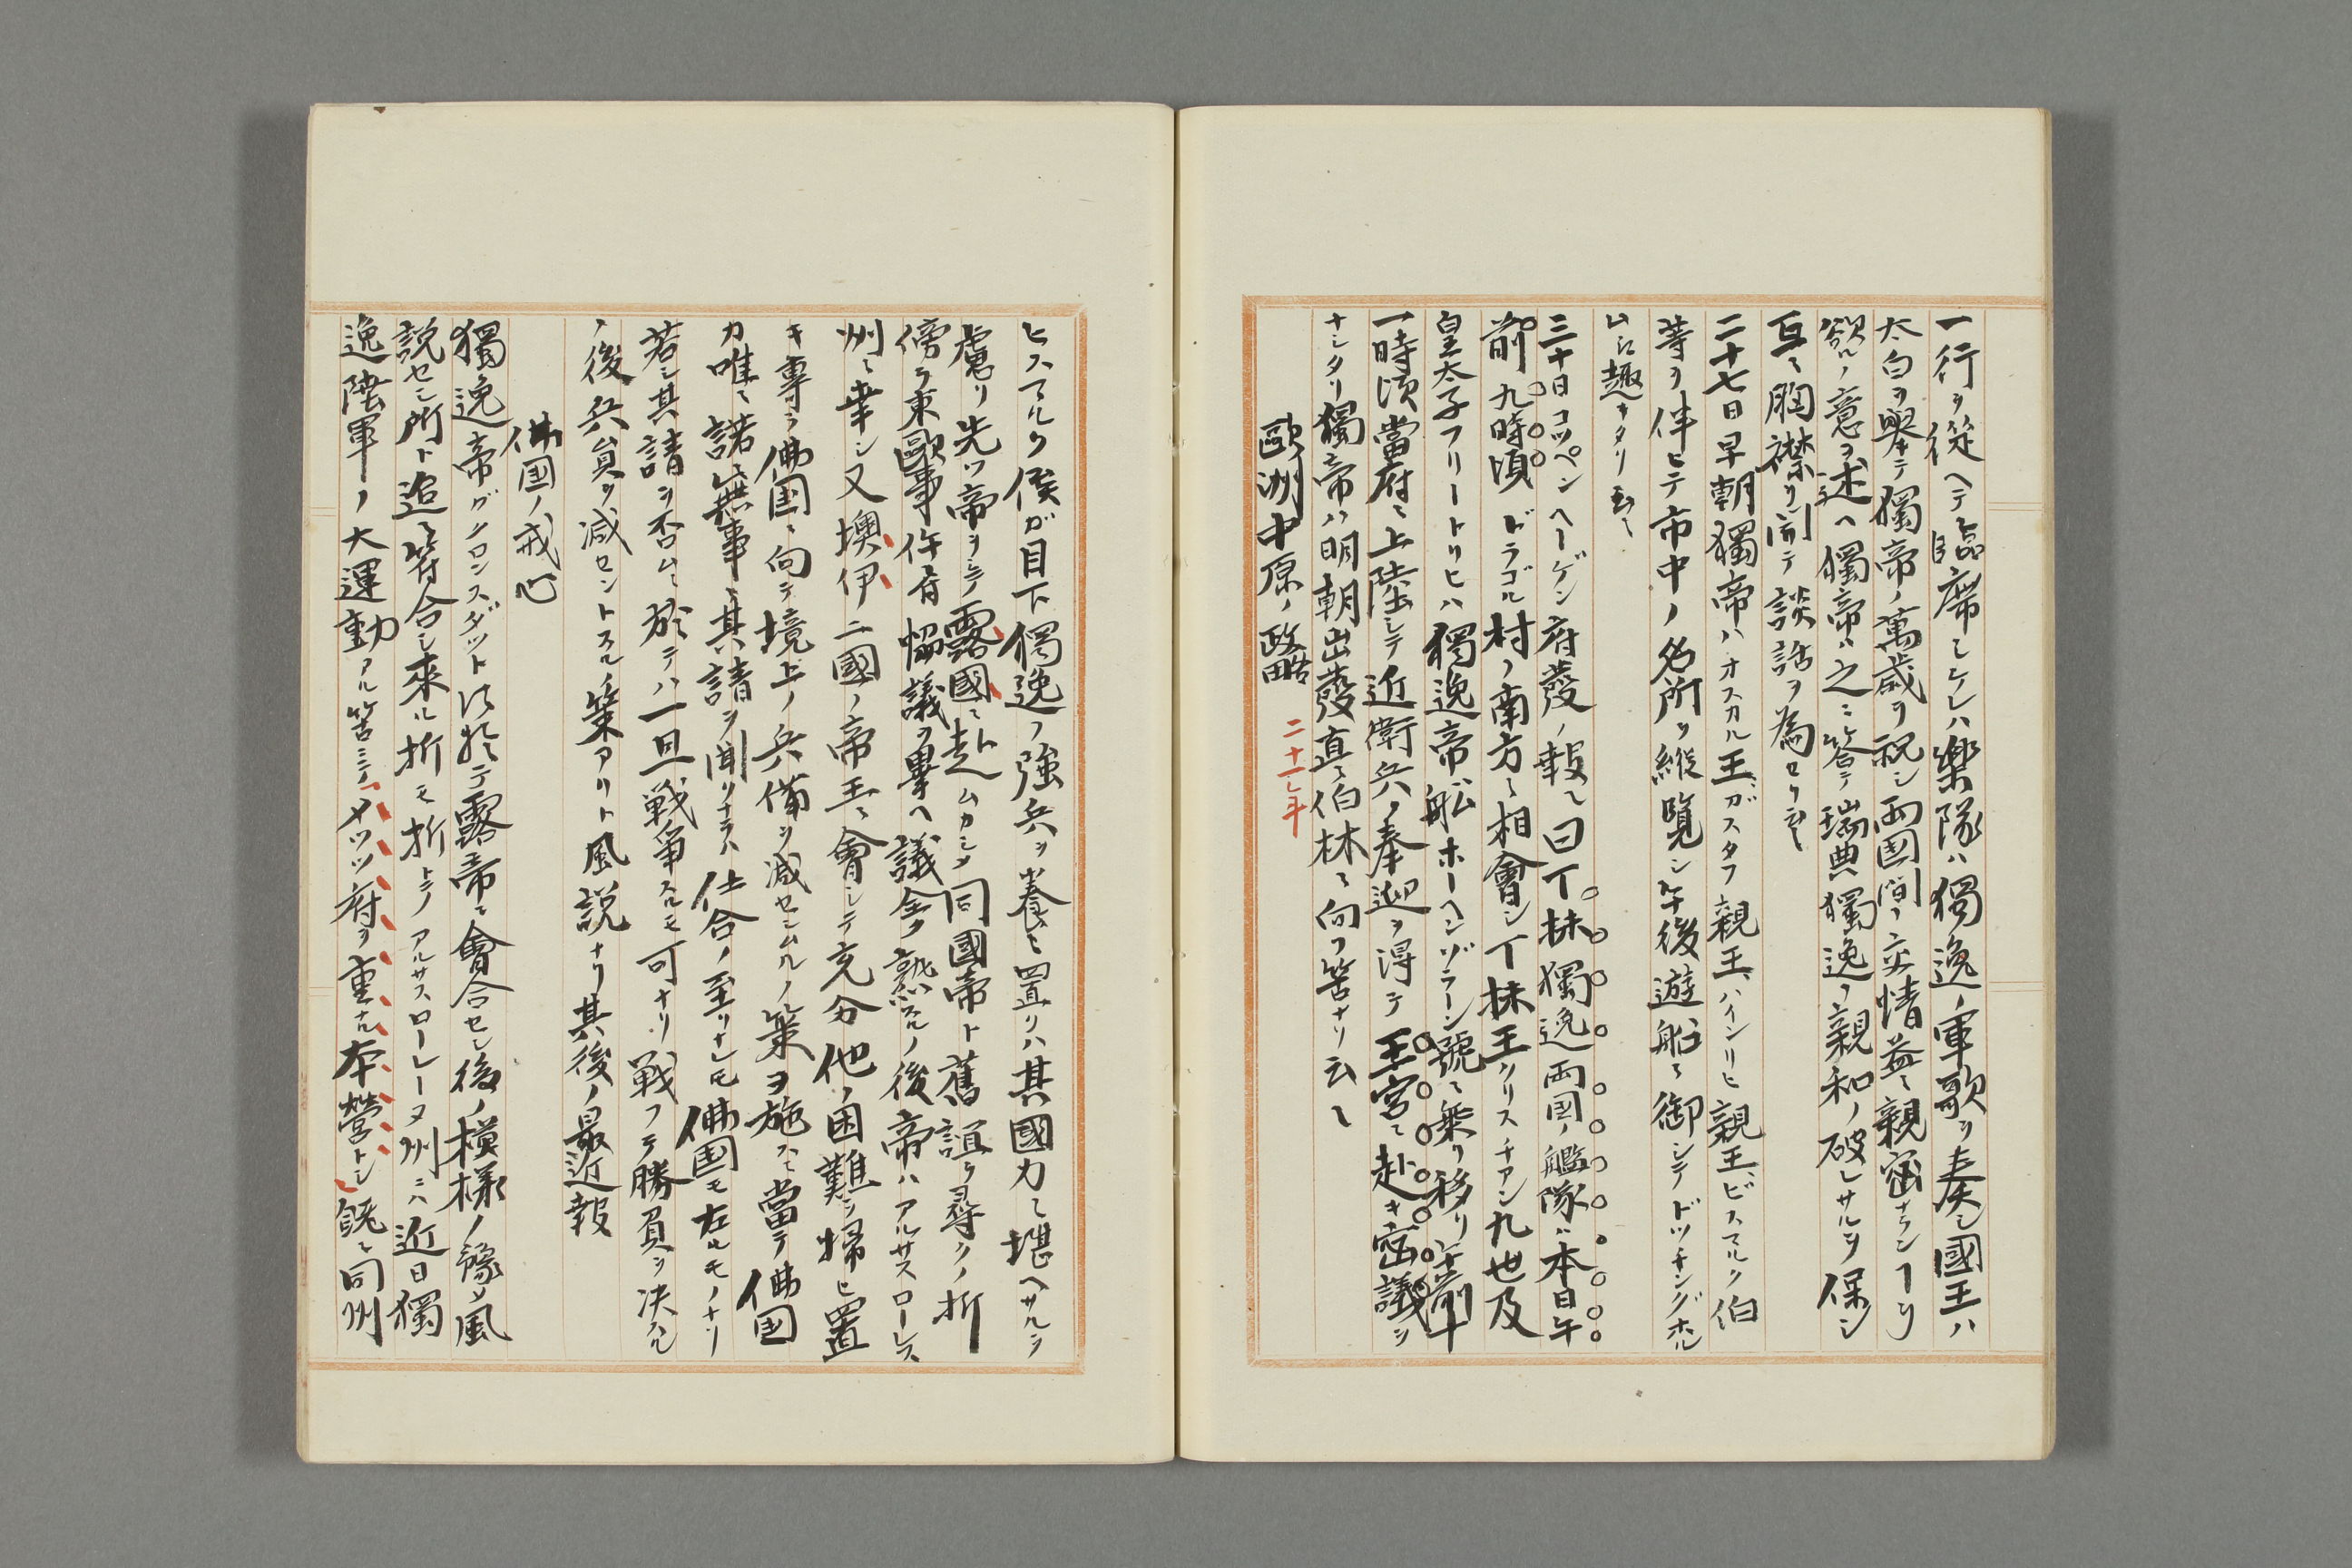 一行ヲ從ヘテ臨席シケレハ樂隊ハ獨逸ノ軍歌ヲ奏シ國王ハ
太白ヲ擧ケテ獨帝ノ萬歳ヲ祝シ両国間ノ交情益々親密ナランヿヲ
欲ルノ意ヲ述ヘ獨帝ハ之ニ答テ瑞典獨逸ノ親和ノ破レサルヲ保シ
互ニ胸襟ヲ開テ談話ヲ為セリ云々
二十七日早朝獨帝ハオスカル王、ガスタフ親王、ハインリヒ親王、ビスマルク伯
等ヲ伴ヒテ市中ノ名所ヲ縦覧シ午後遊船ニ御シテドッチンググホルム
ムニ趣キタリ云々
三十日コッペンヘーゲン府發ノ報ニ曰丁抹獨逸両国ノ艦隊ハ本日午
前九時頃ドラゴル村ノ南方ニ相會シ丁抹王クリスチアン九世及
皇太子フリートリヒハ獨逸帝船ホーヘンヅラーン號ニ乗リ移リ午前十
一時頃當府ニ上陸シテ近衛兵ノ奉迎ヲ得テ王宮ニ赴キ密議ヲ
ナシタリ獨帝ハ明朝出發直ニ伯林ニ向フ筈ナリ云々
歐洲中原ノ政略 二十一年
ヒスマルク侯ガ目下獨逸ノ強兵ヲ養ヒ置リハ其國力ニ堪ヘサルヲ
慮リ先ツ帝ヲシテ露國ニ赴ムカシメ同國帝ト舊誼ヲ尋クノ折
傍ラ東歐事件有協議ヲ畢ヘ議全ク熟スルノ後帝ハアルサスローレス
州ニ幸シ又墺伊二國ノ帝王ニ會シテ充分他ノ困難ヲ掃ヒ置
キ專ラ佛国ニ向テ境上ノ兵備ヲ減センムルノ策ヲ施スヘシ當テ佛国
カ唯々諾々無事ニ其請ヲ聞リナラハ仕合ノ至リナレモ佛国モ左ルモノナリ
若シ其請ヲ否ムニ於テハ一旦戦争スルモ可ナリ戦フテ勝負ヲ决スル
ノ後兵員ヲ減セントスルノ策アリト風説ナリ其後ノ最近報
佛国ノ戒心
獨逸帝ガクロンスダットニ於テ露帝ニ會合セシ後ノ模様ノ豫メ風
説セシ所ト追々符合シ來ル折モ折トテアルサスローレーヌ州ニハ近日獨
逸陸軍ノ大運動アル筈ニテメッツ府ヲ重ナル本營トシ既ニ同州